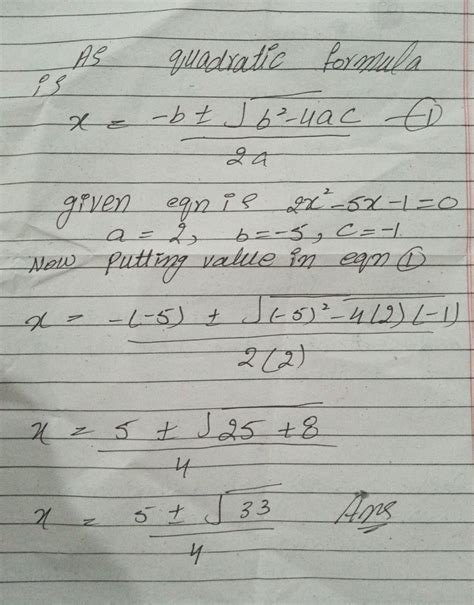 As quadratic formula
is
x = -b ± √b²-4ac / 2a —①
given eqn is 2x²-5x-1=0
a = 2, b=-5, c=-1
Now putting value in eqn ①
x = -(-5) ± √(-5)²-4(2)(-1) / 2(2)
x = 5 ± √25+8 / 4
x = 5 ± √33 / 4 Ans